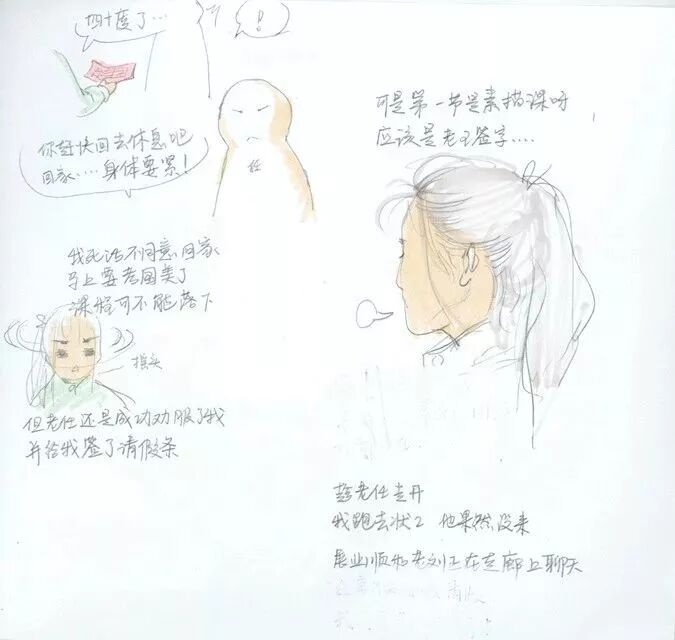 四十度了...
!
你赶快回去休息吧
回家....身体要紧!
任
我死活不同意回家
马上要考国美了
课程可不能落下
摇头
但老任还是成功劝服了我
并给我签了请假条
可是第一节是素描课呀
应该是老王签字....
趁老任走开
我跑去状2 他果然没来
是业顺和老刘正在走廊上聊天